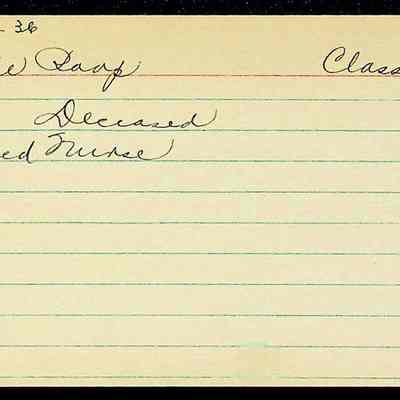 36
Class
Deceased
ed Nurse